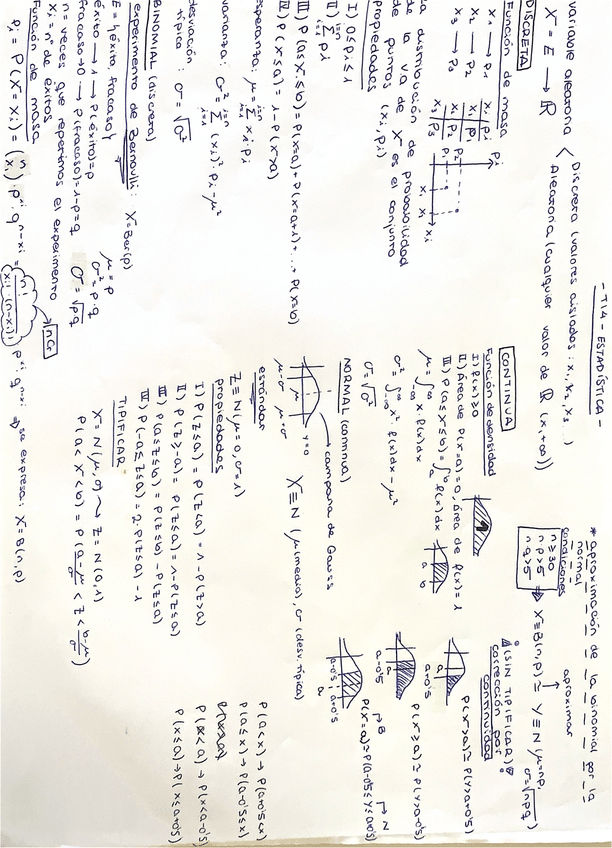 - T14 - ESTADÍSTICA -
variable aleatoria
Discreta (valores aislados: x₁, x₂, x₃...)
Aleatoria (cualquier valor de ℝ (x, +∞))
X = E → ℝ
DISCRETA
Función de masa
x₁ → p₁
x₂ → p₂
x₃ → p₃
xᵢ | pᵢ
x₁ | p₁
x₃ | p₃
pᵢ
p₂
p₁
xᵢ
la distribución de probabilidad
de la v.a de X es el conjunto
de puntos (xᵢ, pᵢ)
propiedades
I) 0 ≤ pᵢ ≤ 1
III) P(a ≤ X ≤ b) = P(X=a) + P(X=a+1) + ... + P(X=b)
IV) P(X ≤ a) = 1 - P(X > a)
esperanza: μ = Σ xᵢ · pᵢ
varianza: σ² = Σ (xᵢ)² pᵢ - μ²
desviación típica: σ = √σ²
BINOMIAL (discreta)
experimento de Bernoulli: X = Ber(p)
E = {éxito, fracaso}
éxito → 1 → P(éxito) = p
fracaso → 0 → P(fracaso) = 1 - p = q
μ = p
σ² = p · q
σ = √pq
n = veces que repetimos el experimento
xᵢ = nº de éxitos
Función de masa
pᵢ = P(X = xᵢ) = (n xᵢ) · pˣⁱ · qⁿ⁻ˣⁱ = n! / xᵢ! · (n - xᵢ)! · pˣⁱ · qⁿ⁻ˣⁱ
se expresa: X = B(n, p)
CONTINUA
Función de densidad
II) Área de P(x=a) = 0, área de f(x) = 1
III) P(a ≤ X ≤ b) = ∫ₐᵇ f(x) dx
a b
μ = ∫ x · f(x) dx
σ² = ∫ x² · f(x) dx - μ²
σ = √σ²
NORMAL (continua)
campana de Gauss
y = 0
X ≡ N (μ (media), σ (desv. típica))
estándar
Z ≡ N(μ = 0, σ = 1)
propiedades
I) P(Z ≤ a) = P(Z < a) = 1 - P(Z > a)
II) P(Z ≥ -a) = P(Z ≤ a) = 1 - P(Z ≤ a)
III) P(a ≤ Z ≤ b) = P(Z ≤ b) - P(Z ≤ a)
IV) P(-a ≤ Z ≤ a) = 2 · P(Z ≤ a) - 1
TIPIFICAR
X = N(μ, σ) → Z = N(0, 1)
P(a < X < b) = P(a-μ/σ < Z < b-μ/σ)
* aproximación de la binomial por la
normal
condiciones
n ≥ 30
n · p > 5
n · q > 5
X ≡ B(n, p) ≅ Y ≡ N(μ = np, σ = √npq)
aproximar
(SIN TIPIFICAR)
corrección por
continuidad
P(X > a) ≅ P(Y > a+0'5)
a a+0'5
P(X ≥ a) ≅ P(Y > a-0'5)
a-0'5
P(X = a) ≅ P(a-0'5 ≤ Y ≤ a+0'5)
B
N
a-0'5 a a+0'5
P(a < x) → P(a+0'5 ≤ x)
P(a ≤ x) → P(a-0'5 ≤ x)
P(x < a) → P(x < a-0'5)
P(x ≤ a) → P(x ≤ a+0'5)